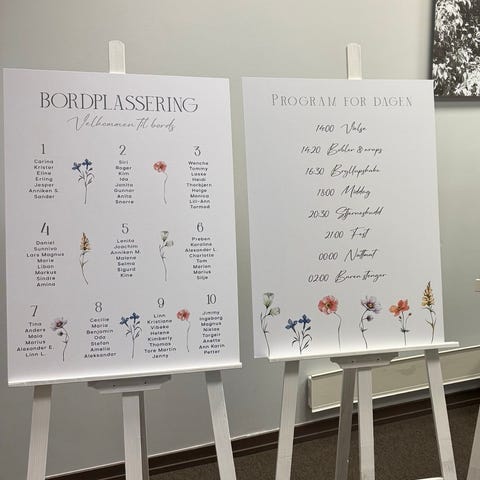 BORDPLASSERING
Velkommen til bords
1
Carina
Krister
Eline
Erling
Jesper
Anniken S.
Sander
2
Siri
Roger
Kim
Ida
Janita
Gunnar
Anita
Snorre
3
Wenche
Tommy
Laske
Heidi
Thorbjørn
Helge
Monica
Lill-Ann
Tormod
4
Daniel
Sunniva
Lars Magnus
Marie
Liban
Markus
Sindre
Amina
5
Lenita
Joachim
Anniken M.
Malene
Selma
Sigurd
Kine
6
Preben
Karoline
Alexander L.
Charlotte
Tom
Merian
Marius
Silje
7
Tina
Anders
Maia
Marius
Alexander E.
Linn L.
8
Cecilie
Maria
Benjamin
Oda
Stefan
Amelia
Aleksander
9
Linn
Kristiane
Vibeke
Helena
Kimberly
Thomas
Tore Martin
Jenny
10
Jimmy
Ingeborg
Magnus
Niklas
Jørgen
Anette
Ann Karin
Petter
PROGRAM FOR DAGEN
14:00 Vielse
14:20 Bobler & wraps
16:30 Bryllupskake
18:00 Middag
20:30 Stjerneskudd
21:00 Fest
00:00 Nattmat
02:00 Baren stenger